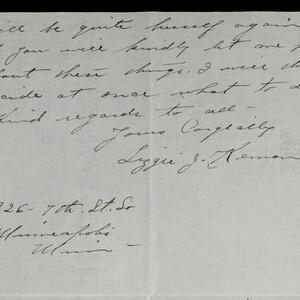 ill be quite himself again
f you will kindly let me
out these things. I will th
cide at once what to d
Kind regards to all-
Yours Cordially
Lizzie J. Kernan
26- 7th. St. So
Minneapolis
Minn-